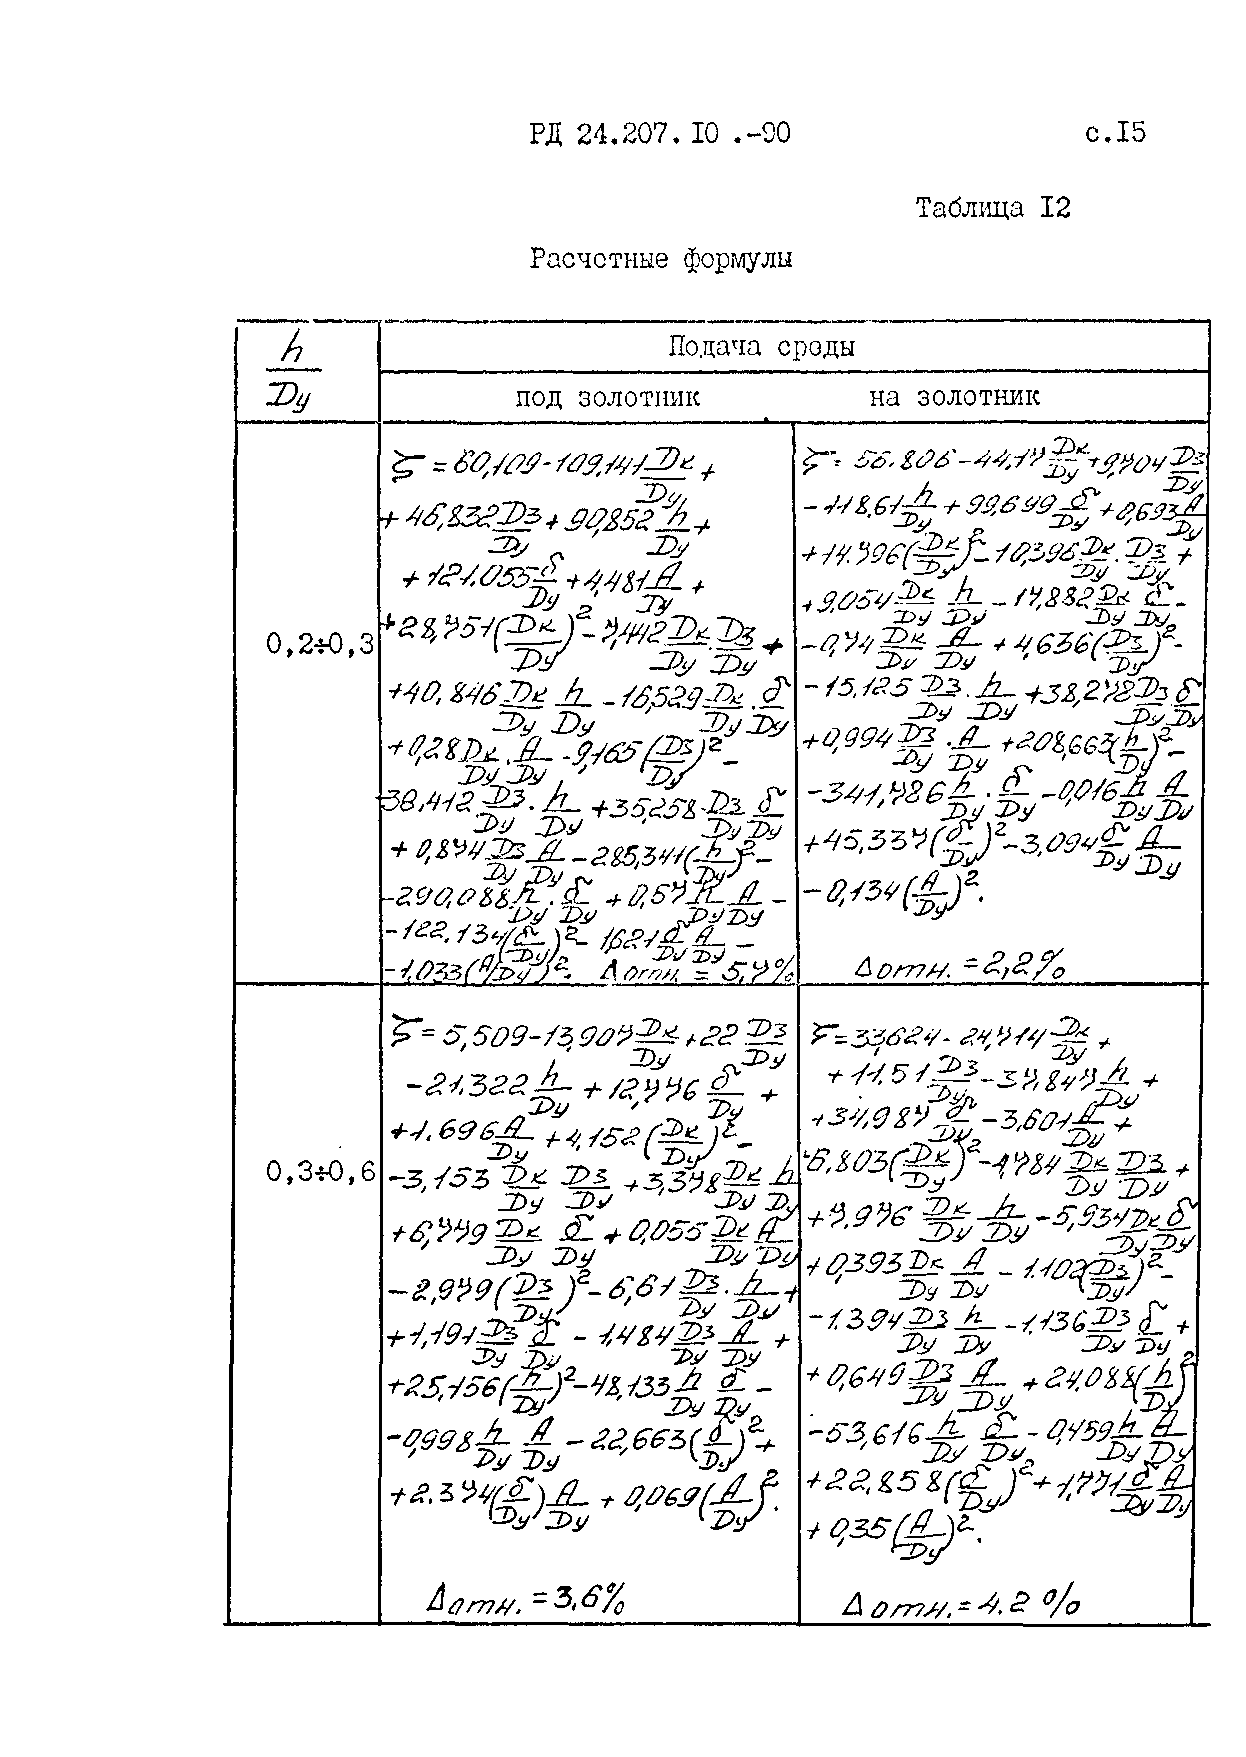 РД 24.207.10 .-90 с.15
Таблица 12
Расчетные формулы
h/Dy
Подача среды
под золотник на золотник
0,2÷0,3
ζ = 60,109-109,141 Dк/Dy +
+ 46,832 Dз/Dy + 90,852 h/Dy +
+ 121.055 δ/Dy + 4,481 A/Dy +
+28,751(Dк/Dy)² - 7,442 Dк/Dy · Dз/Dy +
+40,846 Dк/Dy h/Dy - 16,529 Dк/Dy · δ/Dy
+0,28 Dк/Dy · A/Dy - 9,165 (Dз/Dy)² -
38,412 Dз/Dy · h/Dy + 35,258 · Dз/Dy δ/Dy
+ 0,874 Dз/Dy A/Dy - 285,341(h/Dy)² -
-290,088 h/Dy · δ/Dy + 0,57 h/Dy A/Dy -
-122.134(δ/Dy)² - 1,621 δ/Dy A/Dy -
-1,033(A/Dy)². Δотн. = 5,7%
ζ = 56.806 - 44,17 Dк/Dy + 9,704 Dз/Dy
- 118,61 h/Dy + 99,649 δ/Dy + 0,693 A/Dy
+14.796(Dк/Dy)² - 10,396 Dк/Dy · Dз/Dy +
+9,054 Dк/Dy h/Dy - 17,882 Dк/Dy δ/Dy -
-0,74 Dк/Dy A/Dy + 4,636(Dз/Dy)² -
-15,125 Dз/Dy · h/Dy + 38,278 Dз/Dy δ/Dy
+0,994 Dз/Dy · A/Dy + 208,663(h/Dy)² -
-341,786 h/Dy · δ/Dy - 0,016 h/Dy A/Dy
+45,337(δ/Dy)² - 3,094 δ/Dy A/Dy
- 0,134(A/Dy)².
Δотн. = 2,2%
0,3÷0,6
ζ = 5,509 - 13,907 Dк/Dy + 22 Dз/Dy
-21.322 h/Dy + 12,776 δ/Dy +
+1.696 A/Dy + 4,152(Dк/Dy)² -
-3,153 Dк/Dy Dз/Dy + 3,378 Dк/Dy h/Dy
+6,779 Dк/Dy δ/Dy + 0,055 Dк/Dy A/Dy
-2,979(Dз/Dy)² - 6,61 Dз/Dy · h/Dy +
+1,191 Dз/Dy δ/Dy - 1,484 Dз/Dy A/Dy +
+25,156(h/Dy)² - 48,133 h/Dy δ/Dy -
-0,998 h/Dy A/Dy - 22,663(δ/Dy)² +
+2.374(δ/Dy) A/Dy + 0,069(A/Dy)².
Δотн. = 3,6%
ζ = 33,624 - 24,714 Dк/Dy +
+11.51 Dз/Dy - 37,847 h/Dy +
+34,987 δ/Dy - 3,601 A/Dy +
+6.803(Dк/Dy)² - 4,784 Dк/Dy Dз/Dy +
+7,976 Dк/Dy h/Dy - 5,934 Dк/Dy δ/Dy
+0,393 Dк/Dy A/Dy - 1.102(Dз/Dy)² -
-1.394 Dз/Dy h/Dy - 1,136 Dз/Dy δ/Dy +
+0,649 Dз/Dy A/Dy + 24,088(h/Dy)²
-53,616 h/Dy δ/Dy - 0,459 h/Dy A/Dy
+22,858(δ/Dy)² + 1,771 δ/Dy A/Dy
+ 0,35(A/Dy)².
Δотн. = 4.2 %